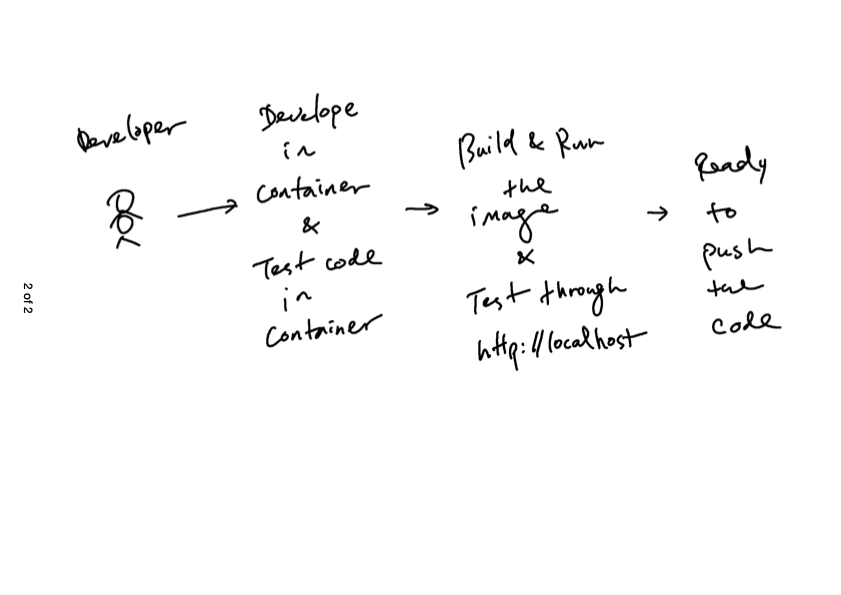 Developer
Develope
in
Container
&
Test code
in
Container
Build & Run
the
image
&
Test through
http://localhost
Ready
to
push
the
code
2 of 2